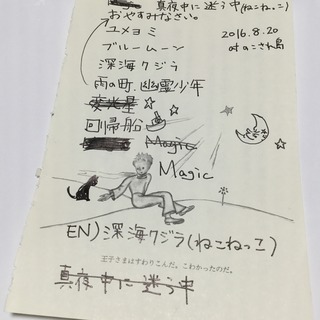 真夜中に迷う中(ねこねっこ)
おやすみなさい。
ユメヨミ
2016.8.20
ブルームーン
at のこされ島
深海クジラ
雨の町、幽霊少年
変光星
回帰船
Magic
Magic
EN)深海クジラ(ねこねっこ)
王子さまはすわりこんだ。こわかったのだ。
真夜中に迷う中